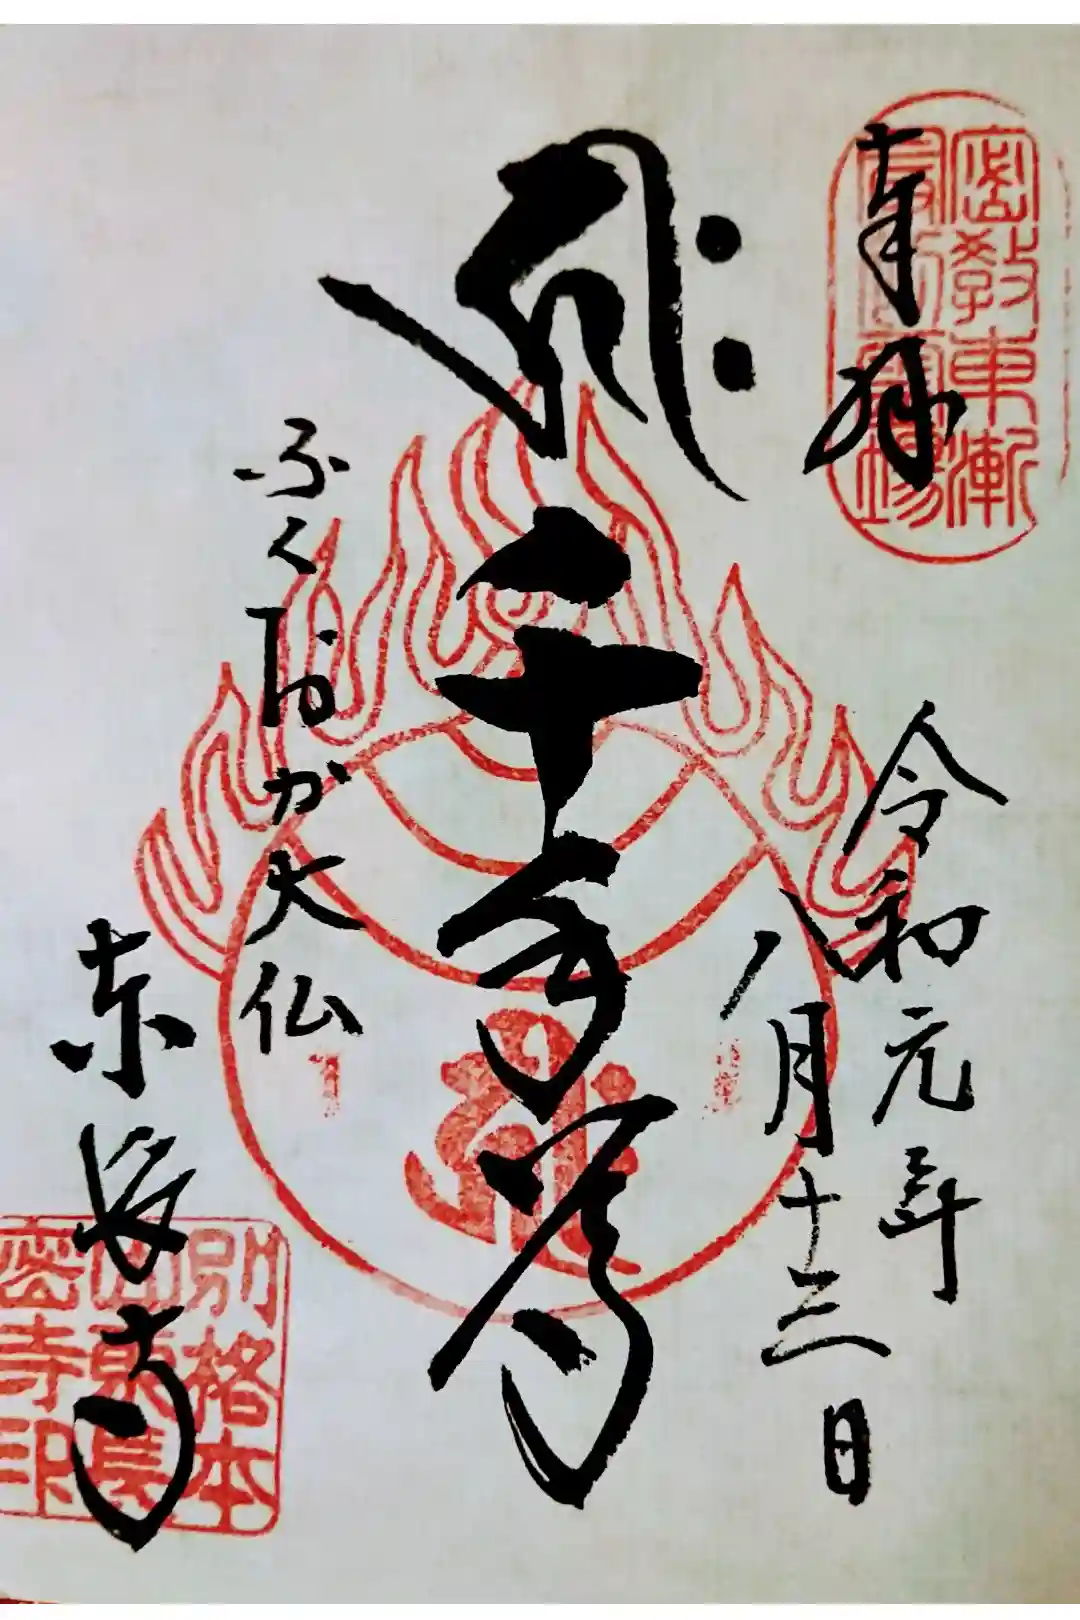 奉拝
密教東漸
最初霊場
令和元年
八月十三日
𑖮𑖿𑖨𑖱𑖾
千手尊
ふくおか大仏
東長寺
別格本
山東長
密寺印